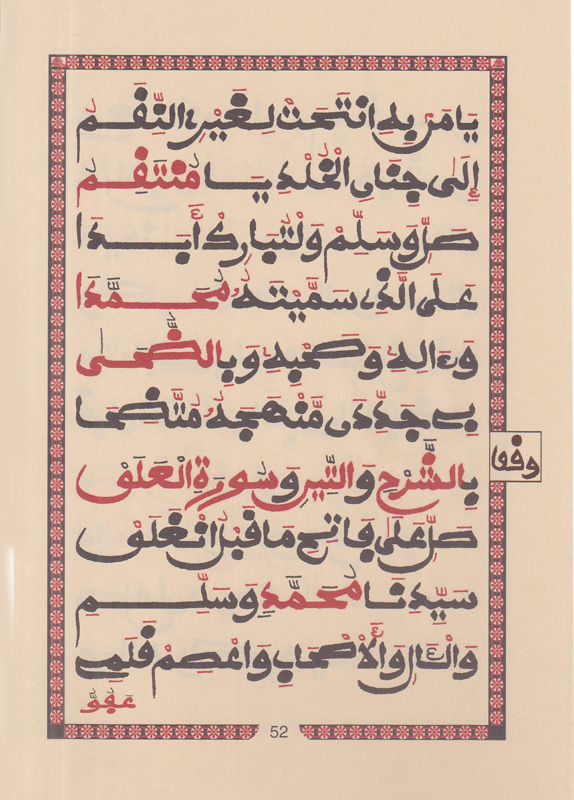 يَامَن بِهِ انْتَحَتْ لِغَيْرِي النِّقَمُ
إِلَى جِنَانِ الْخُلْدِ يَا مُنْتَقِمُ
صَلِّ وَسَلِّمْ وَلْتُبَارِكْ أَبَدَا
عَلَى الَّذِي سَمَّيْتَهُ مُحَمَّدَا
وَءَالِهِ وَصَحْبِهِ وَبِالضُّحَى
لِي جَدِّدَن مَنْهَجَهُ مُتَّضِحَا
بِالشَّرْحِ وَالتِّينِ وَسُورَةِ الْعَلَقْ
صَلِّ عَلَى فَاتِحِ مَا قَبْلُ انْغَلَقْ
سَيِّدِنَا مُحَمَّدٍ وَسَلِّمِ
وَالْآلِ وَالْأَصْحَابِ وَاعْصِمْ قَلَمِي
وقفا
52